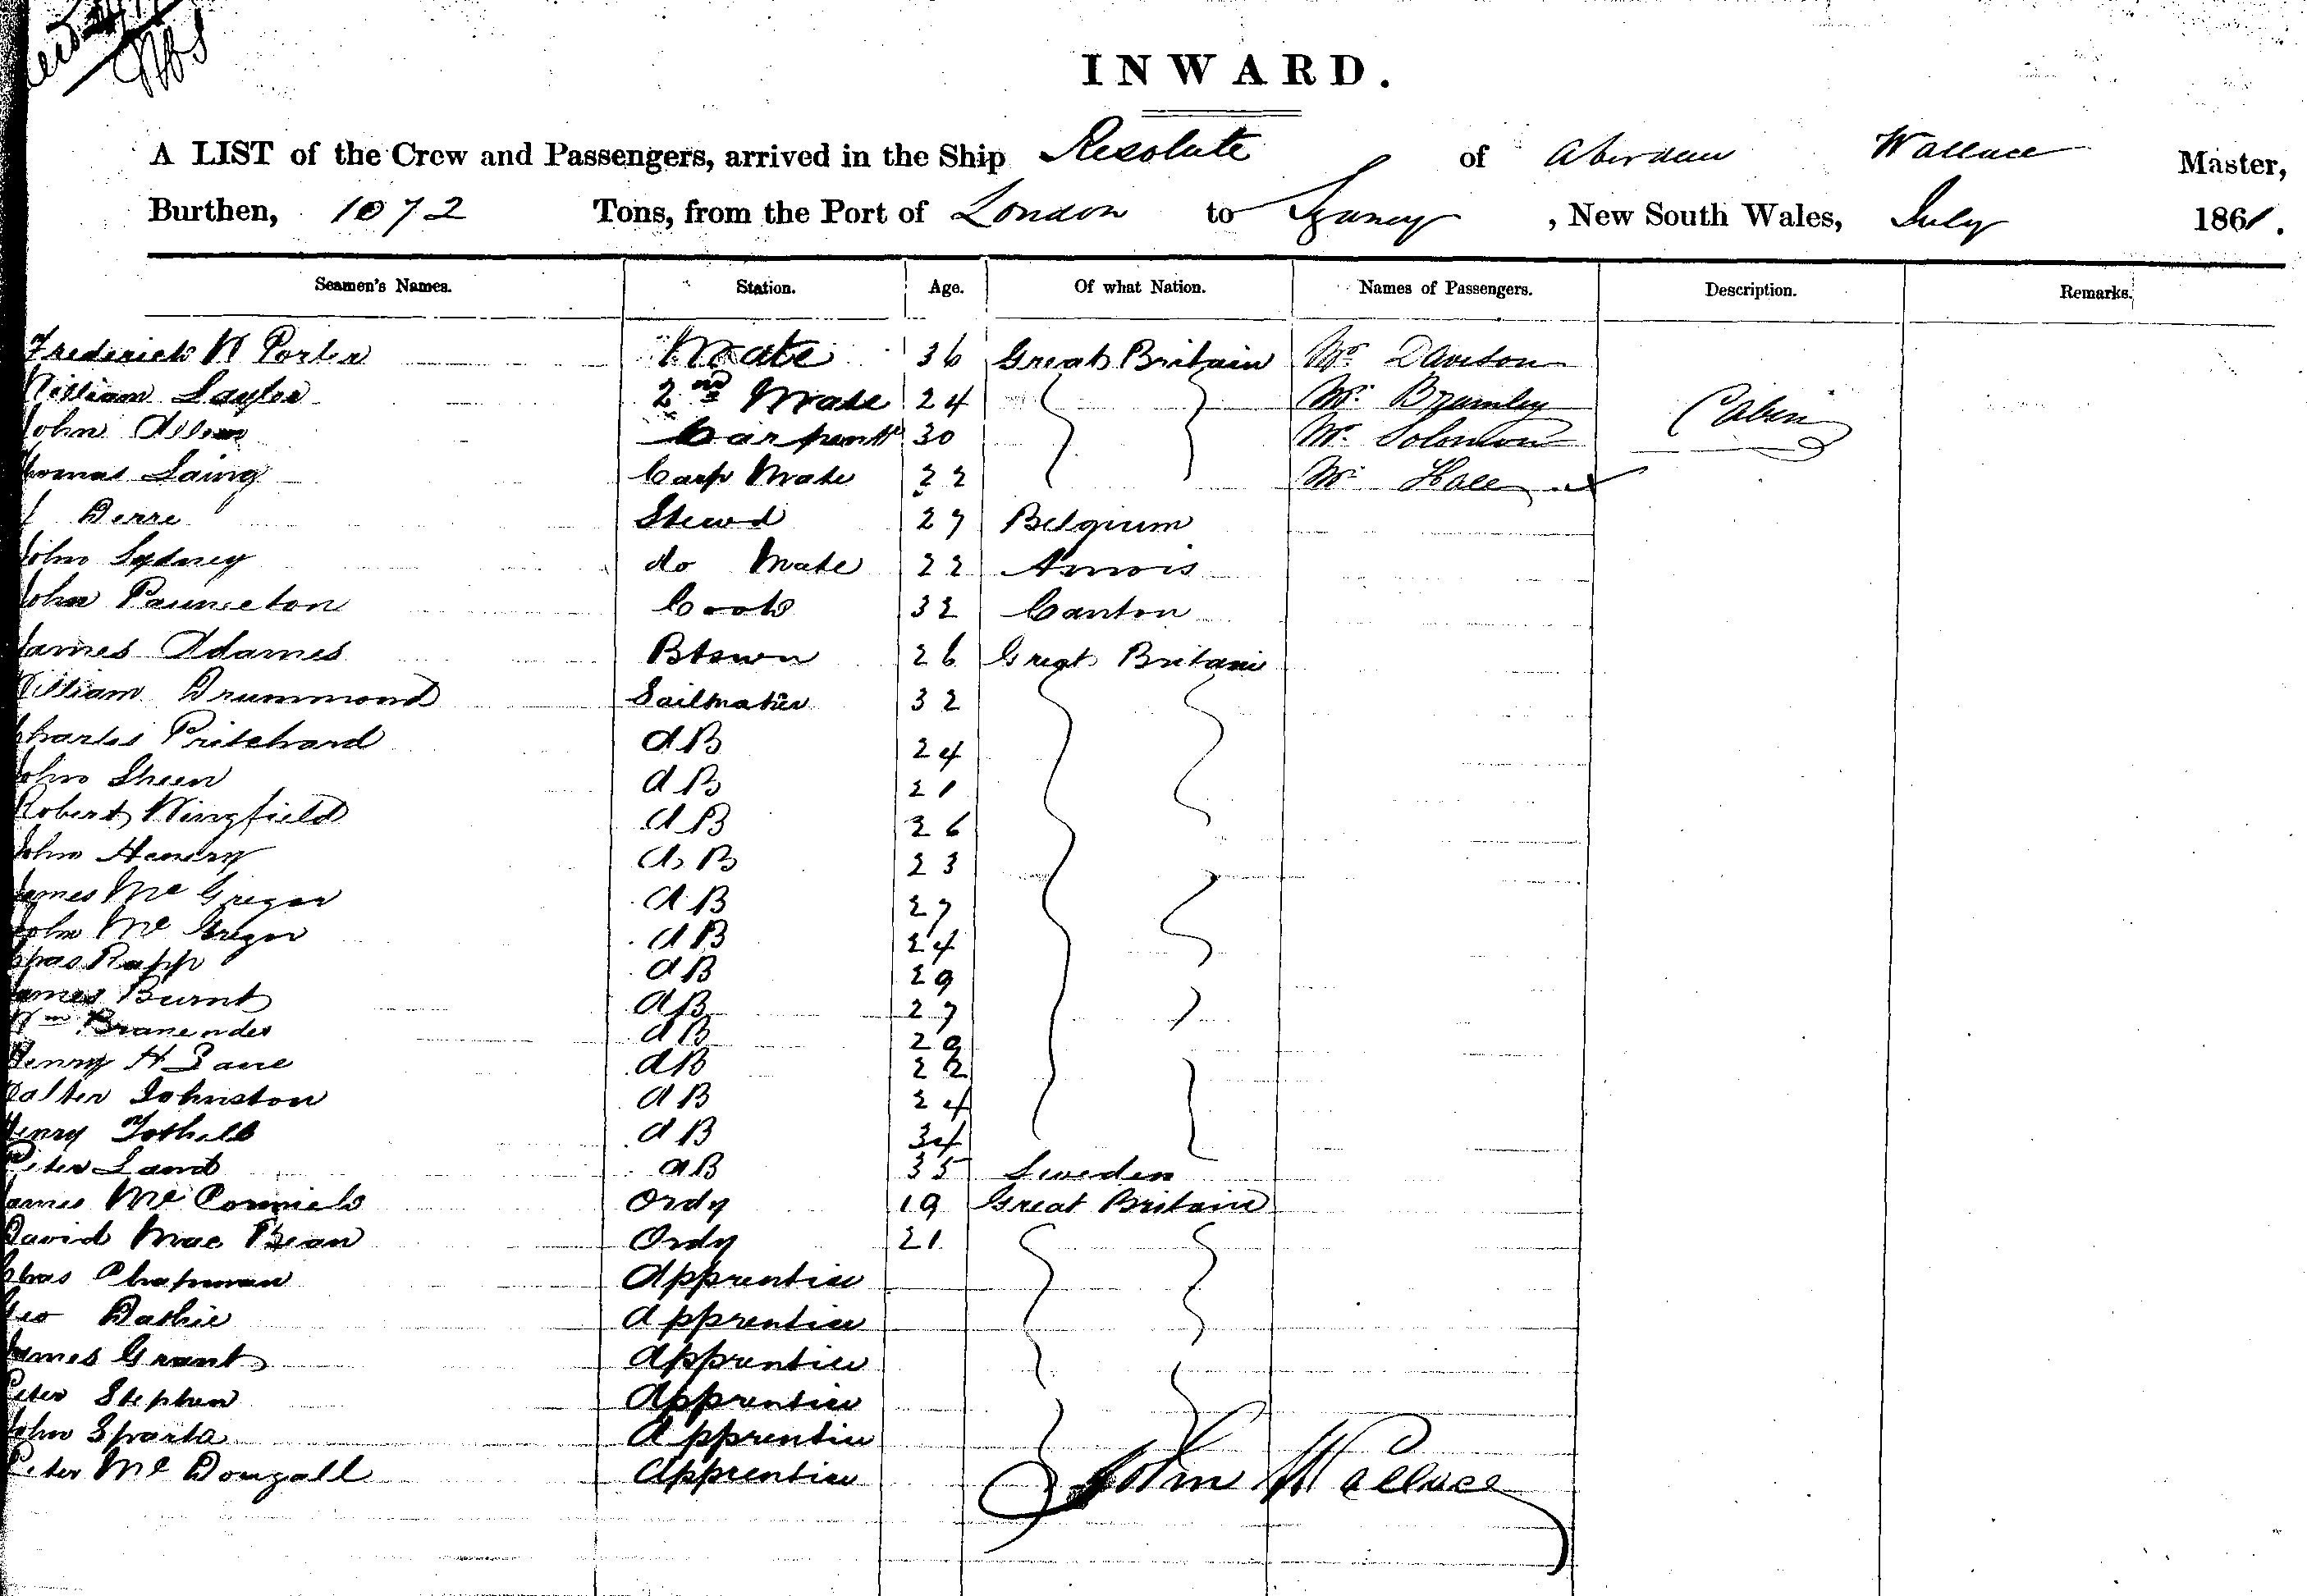 INWARD.
A LIST of the Crew and Passengers, arrived in the Ship Resolute of Aberdeen Wallace Master,
Burthen, 1072 Tons, from the Port of London to Sydney, New South Wales, July 1861.
Seamen's Names. Station. Age. Of what Nation. Names of Passengers. Description. Remarks.
Frederick W Porter Mate 36 Great Britain Mr. Davison
William Saylor 2nd Mate 24 Mr. Brumley Cabin
John Carpentr 30 Mr. Solomon
Thomas Laing Carp Mate 22 Mr
Derre Stewd 27 Belgium
John Sydney do Mate 22
John Paunceton Cook 32 Canton
James Adames Btswn 26 Great Britain
William Drummond Sailmaker 32
Charles Pritchard AB 24
John Sheen AB 21
Robert Wingfield AB 26
John Henery AB 23
James Mc Gregor AB 27
John Mc Gregor AB 24
Chas Rapp AB 29
James Burnt AB 27
Wm AB 29
Henry H Lane AB 22
Walter Johnston AB 24
Henry Tothill AB 34
Peter Land AB 35 Sweden
James Mc Cormick Ordy 19 Great Britain
David Mac Bean Ordy 21
Chas Chapman Apprentice
Geo Dathie Apprentice
James Grant Apprentice
Peter Stephen Apprentice
John Sparta Apprentice
Peter Mc Dougall Apprentice
John Wallace